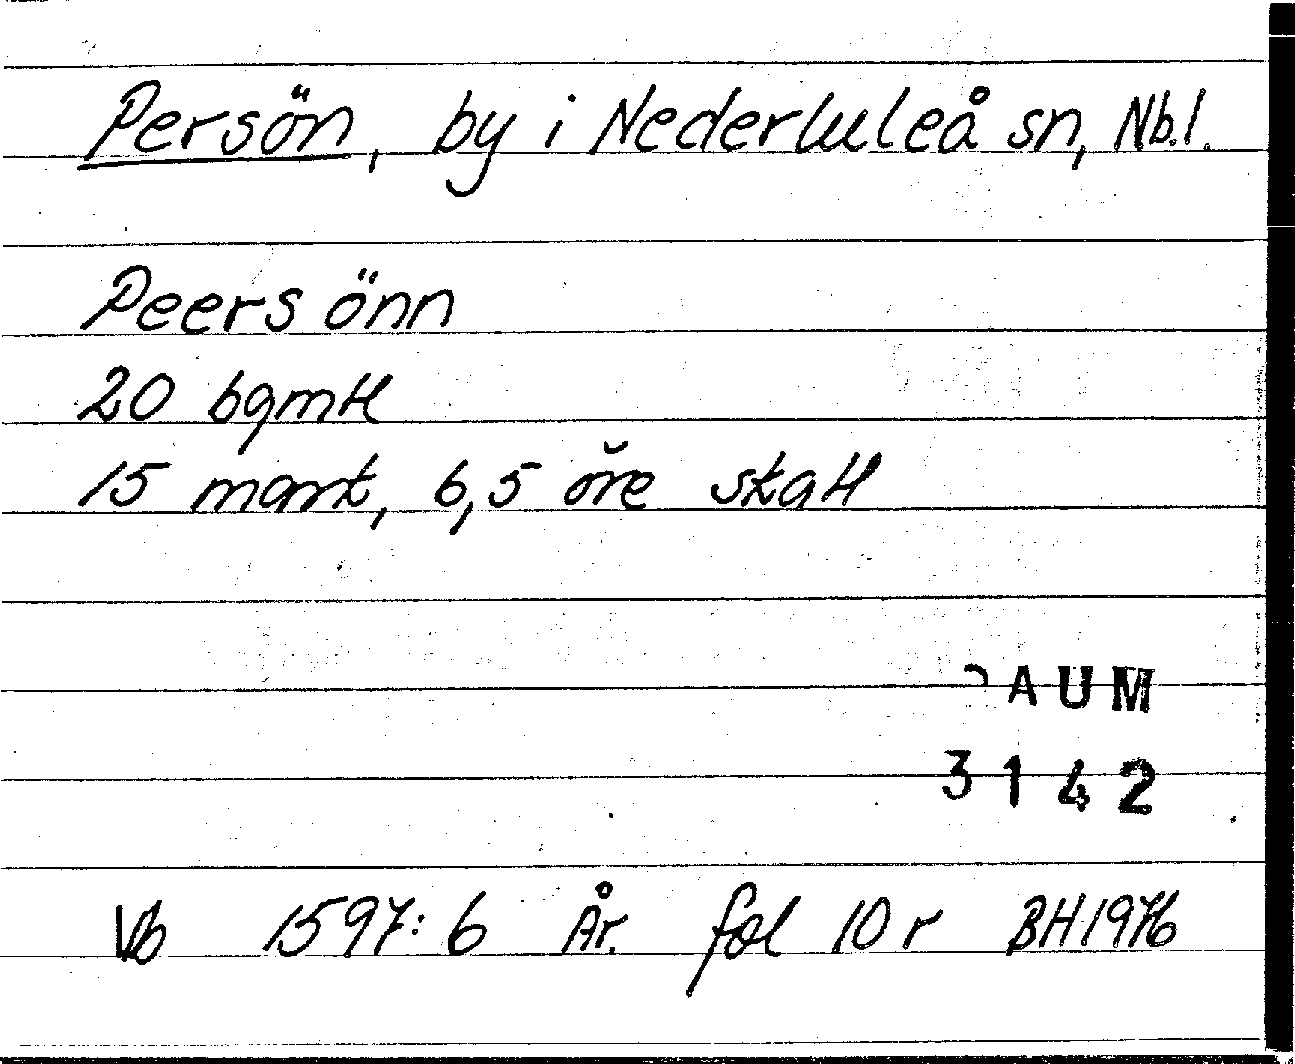 Persön, by i Nederluleå sn, Nb.l.
Peers önn
20 bgmtl
15 mamt, 6,5 öre skatt
DAUM
3142
Vb 1597:6 År. fol 10 r BH 1976